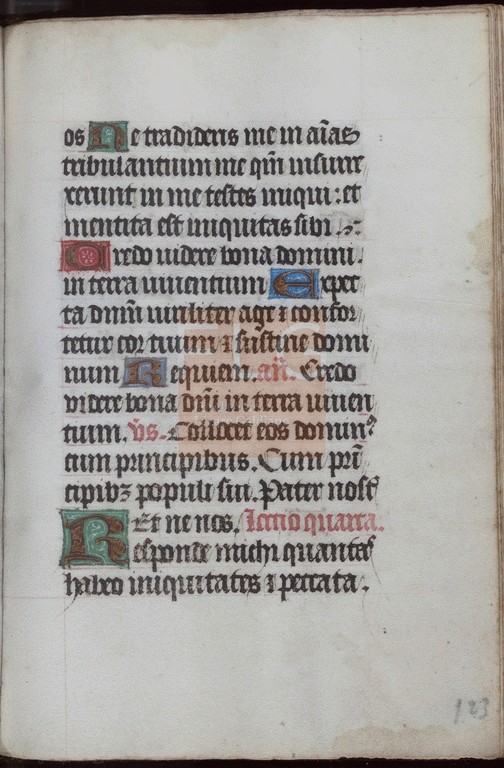 os Ne tradideris me in aīas
tribulantium me qm̄ insurre
xerunt in me testes iniqui: et
mentita est iniquitas sibi.
Credo uidere bona domini.
in terra uiuentium Expec
ta dnm̄ uiriliter age ⁊ confor
tetur cor tuum ⁊ sustine domi
num Requiem. añ. Credo
videre bona dnī in terra uiuen
tium. v̄s. Collocet eos dominꝰ
cum principibus. Cum prī
cipibꝫ populi sui. Pater nost̄
Et ne nos. Lectio quarta.
Responde michi quantas
habeo iniquitates ⁊ peccata.
123